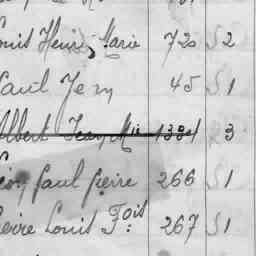 Louis Henri, Marie 720 S 2
Paul Jem 45 S 1
Albert Jean M 1384 S 3
Léon Paul Pierre 266 S 1
Pierre Louis Fois 267 S 1